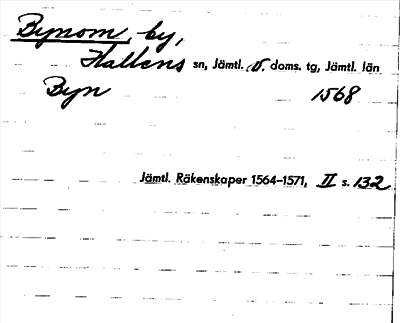 Bynom, by,
Hallens sn, Jämtl. v. doms. tg, Jämtl. län
Byn 1568
Jämtl. Räkenskaper 1564–1571, II s. 132